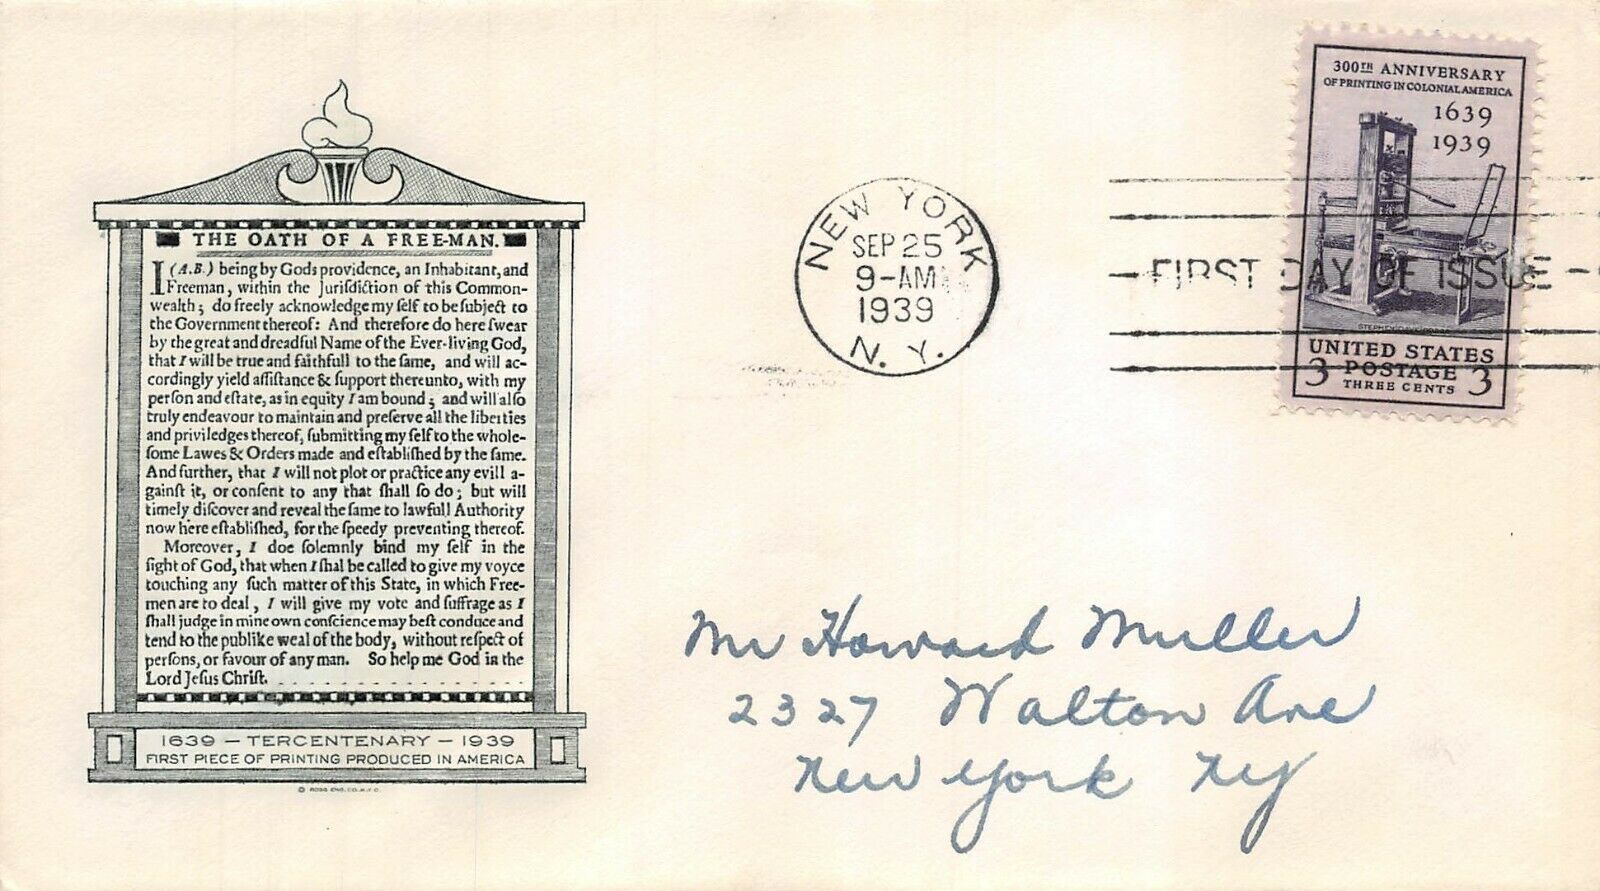 THE OATH OF A FREE-MAN.
I (A.B.) being by Gods providence, an Inhabitant, and
Freeman, within the Juriſdiction of this Common-
wealth; do freely acknowledge my ſelf to be ſubject to
the Government thereof: And therefore do here ſwear
by the great and dreadful Name of the Ever-living God,
that I will be true and faithfull to the ſame, and will ac-
cordingly yield aſſiſtance & ſupport thereunto, with my
perſon and eſtate, as in equity I am bound; and will alſo
truly endeavour to maintain and preſerve all the liberties
and priviledges thereof, ſubmitting my ſelf to the whole-
ſome Lawes & Orders made and eſtabliſhed by the ſame.
And further, that I will not plot or practice any evill a-
gainſt it, or conſent to any that ſhall ſo do; but will
timely diſcover and reveal the ſame to lawfull Authority
now here eſtabliſhed, for the ſpeedy preventing thereof.
Moreover, I doe ſolemnly bind my ſelf in the
ſight of God, that when I ſhal be called to give my voyce
touching any ſuch matter of this State, in which Free-
men are to deal, I will give my vote and ſuffrage as I
ſhall judge in mine own conſcience may beſt conduce and
tend to the publike weal of the body, without reſpect of
perſons, or favour of any man. So help me God in the
Lord Jeſus Chriſt.
1639 – TERCENTENARY – 1939
FIRST PIECE OF PRINTING PRODUCED IN AMERICA
© ROSS ENG. CO. N.Y.C.
NEW YORK
SEP 25
9-AM
1939
N. Y.
FIRST DAY OF ISSUE
300TH ANNIVERSARY
OF PRINTING IN COLONIAL AMERICA
1639
1939
STEPHEN DAYE PRESS
UNITED STATES
3 POSTAGE 3
THREE CENTS
Mr Howard Muller
2327 Walton Ave
New York NY